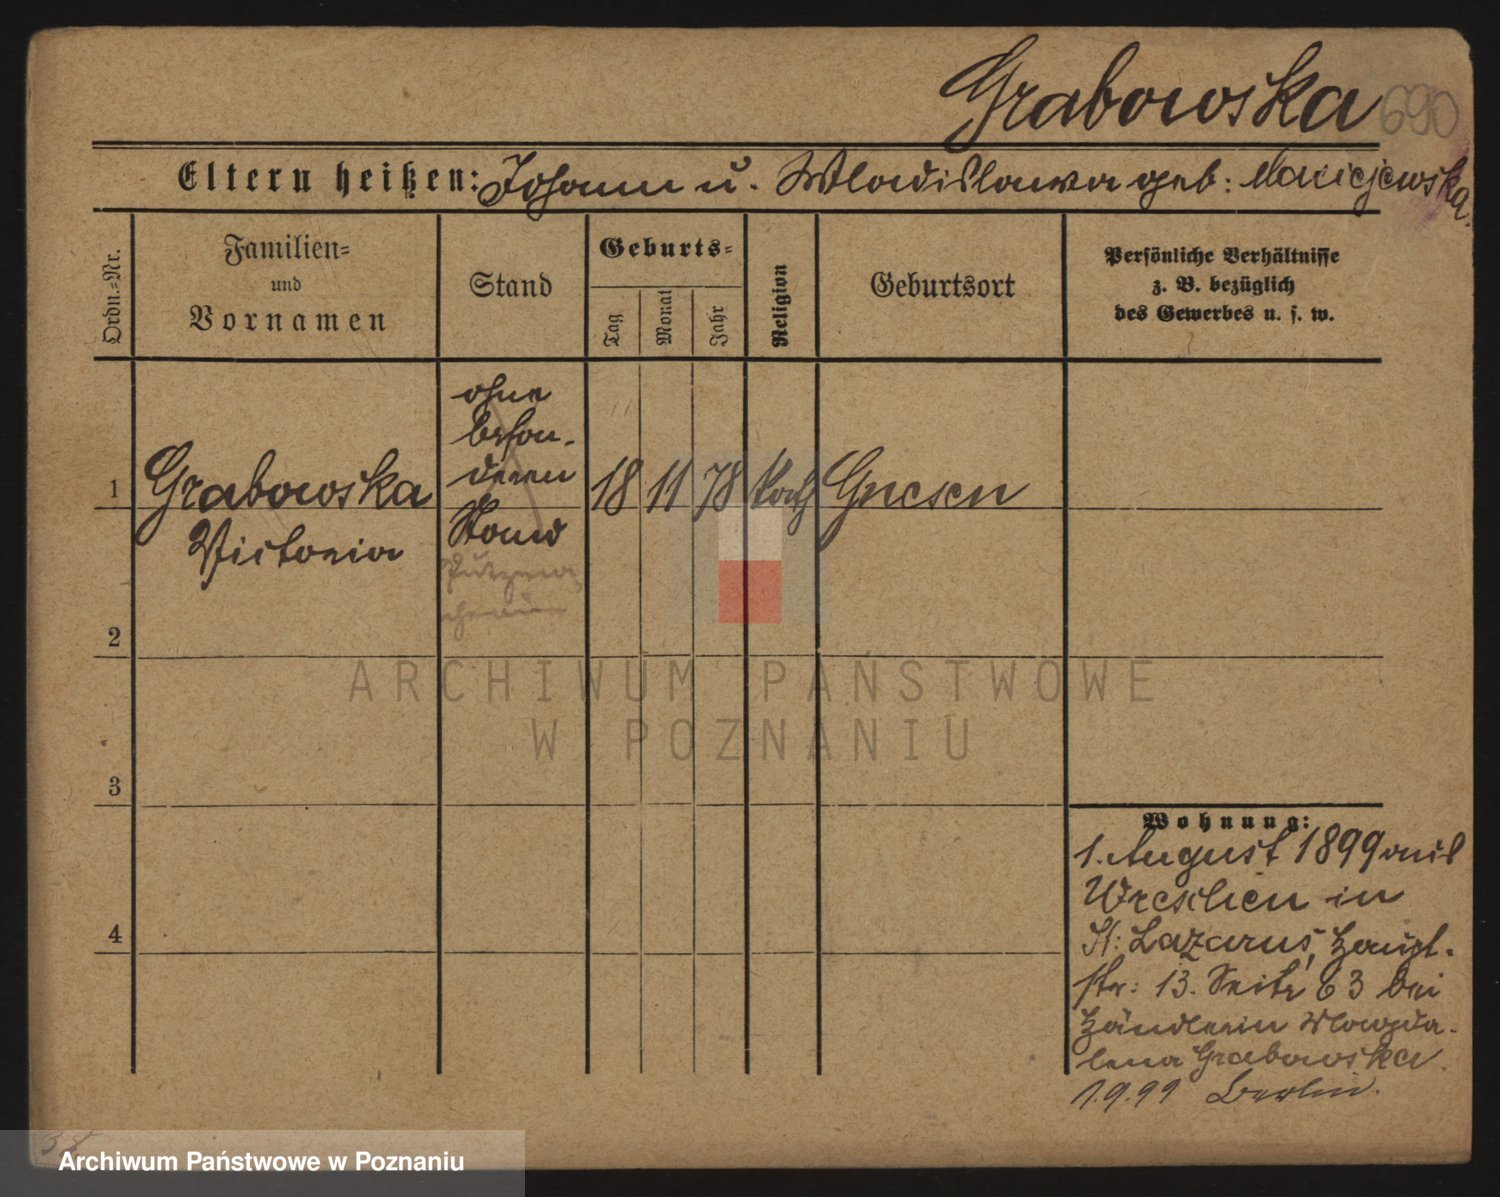 Grabowska 690
Eltern heißen: Johann u. Wladislawa geb: Maciejewska.
Ordn.-Nr.
Familien-
und
Vornamen
Stand
Geburts-
Tag
Monat
Jahr
Religion
Geburtsort
Persönliche Verhältnisse
z. B. bezüglich
des Gewerbes u. s. w.
ohne
beson-
deren
Stand
Putzma-
cherin
1 Grabowska 18 11 78 kath Gnesen
Victoria
2
3
4
Wohnung:
1. August 1899 aus
Wreschen in
St: Lazarus, Haupt-
str: 13. Seite 63 bei
Händlerin Magda-
lena Grabowska.
1.9.99 Berlin.
ARCHIWUM PAŃSTWOWE
W POZNANIU
Archiwum Państwowe w Poznaniu